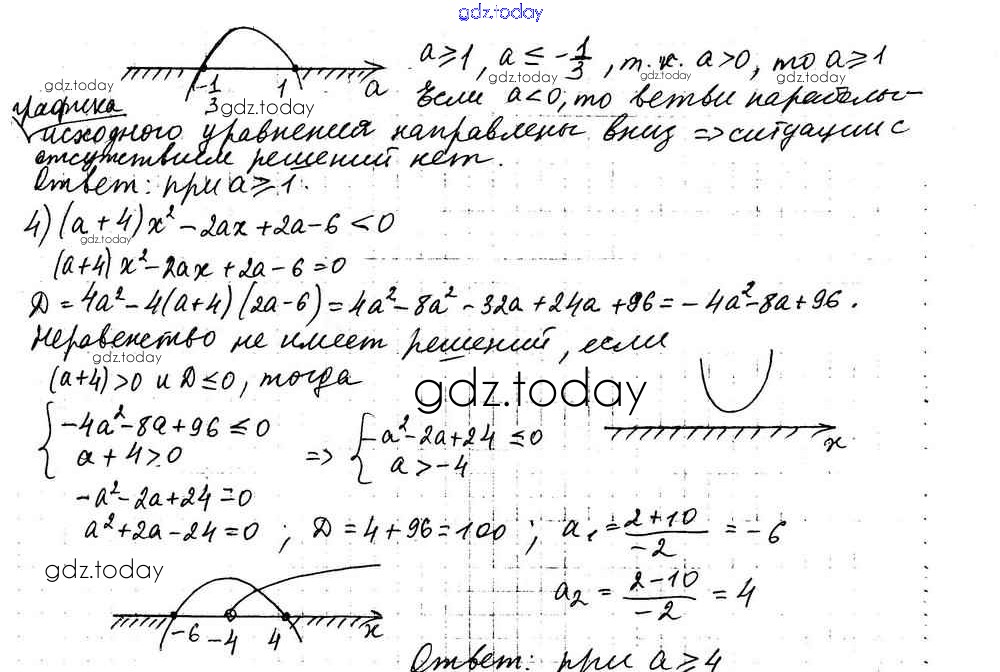 gdz.today
a≥1, a ≤ -1/3, т.к. a>0, то a≥1
-1/3 1 a
gdz.today gdz.today gdz.today
графика gdz.today Если a<0, то ветви параболы
исходного уравнения направлены вниз => ситуации с
отсутствием решений нет.
Ответ: при a≥1.
4) (a+4)x² - 2ax + 2a - 6 < 0
gdz.today
(a+4)x² - 2ax + 2a - 6 = 0
D = 4a² - 4(a+4)(2a-6) = 4a² - 8a² - 32a + 24a + 96 = -4a² - 8a + 96.
Неравенство не имеет решений, если
gdz.today
(a+4)>0 и D≤0, тогда
gdz.today
{ -4a² - 8a + 96 ≤ 0 => { -a² - 2a + 24 ≤ 0
a + 4 > 0 a > -4
x
-a² - 2a + 24 = 0
a² + 2a - 24 = 0 ; D = 4 + 96 = 100 ; a₁ = (2+10)/-2 = -6
gdz.today
a₂ = (2-10)/-2 = 4
-6 -4 4 x
Ответ: при a≥4